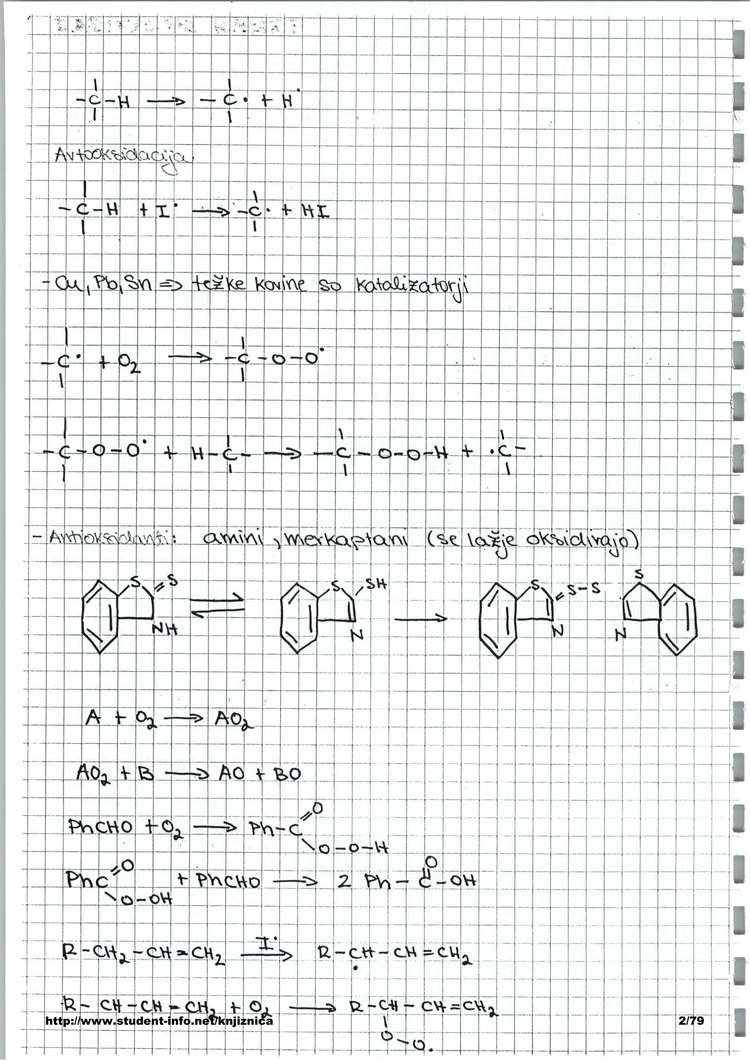 -C-H → -C· + H·
Avtooksidacija
-C-H + I· → -C· + HI
- Cu, Pb, Sn => težke kovine so katalizatorji
-C· + O2 → -C-O-O·
-C-O-O· + H-C- → -C-O-O-H + ·C-
- Antioksidanti: amini, merkaptani (se lažje oksidirajo)
S =S NH ⇌ S SH N → S =S-S N S N
A + O2 → AO2
AO2 + B → AO + BO
PhCHO + O2 → Ph-C=O
O-O-H
PhC=O + PhCHO → 2 Ph-C-OH
O-OH
O
R-CH2-CH=CH2 I· → R-CH-CH=CH2
R-CH-CH=CH2 + O2 → R-CH-CH=CH2
O-O·
http://www.student-info.net/knjiznica 2/79